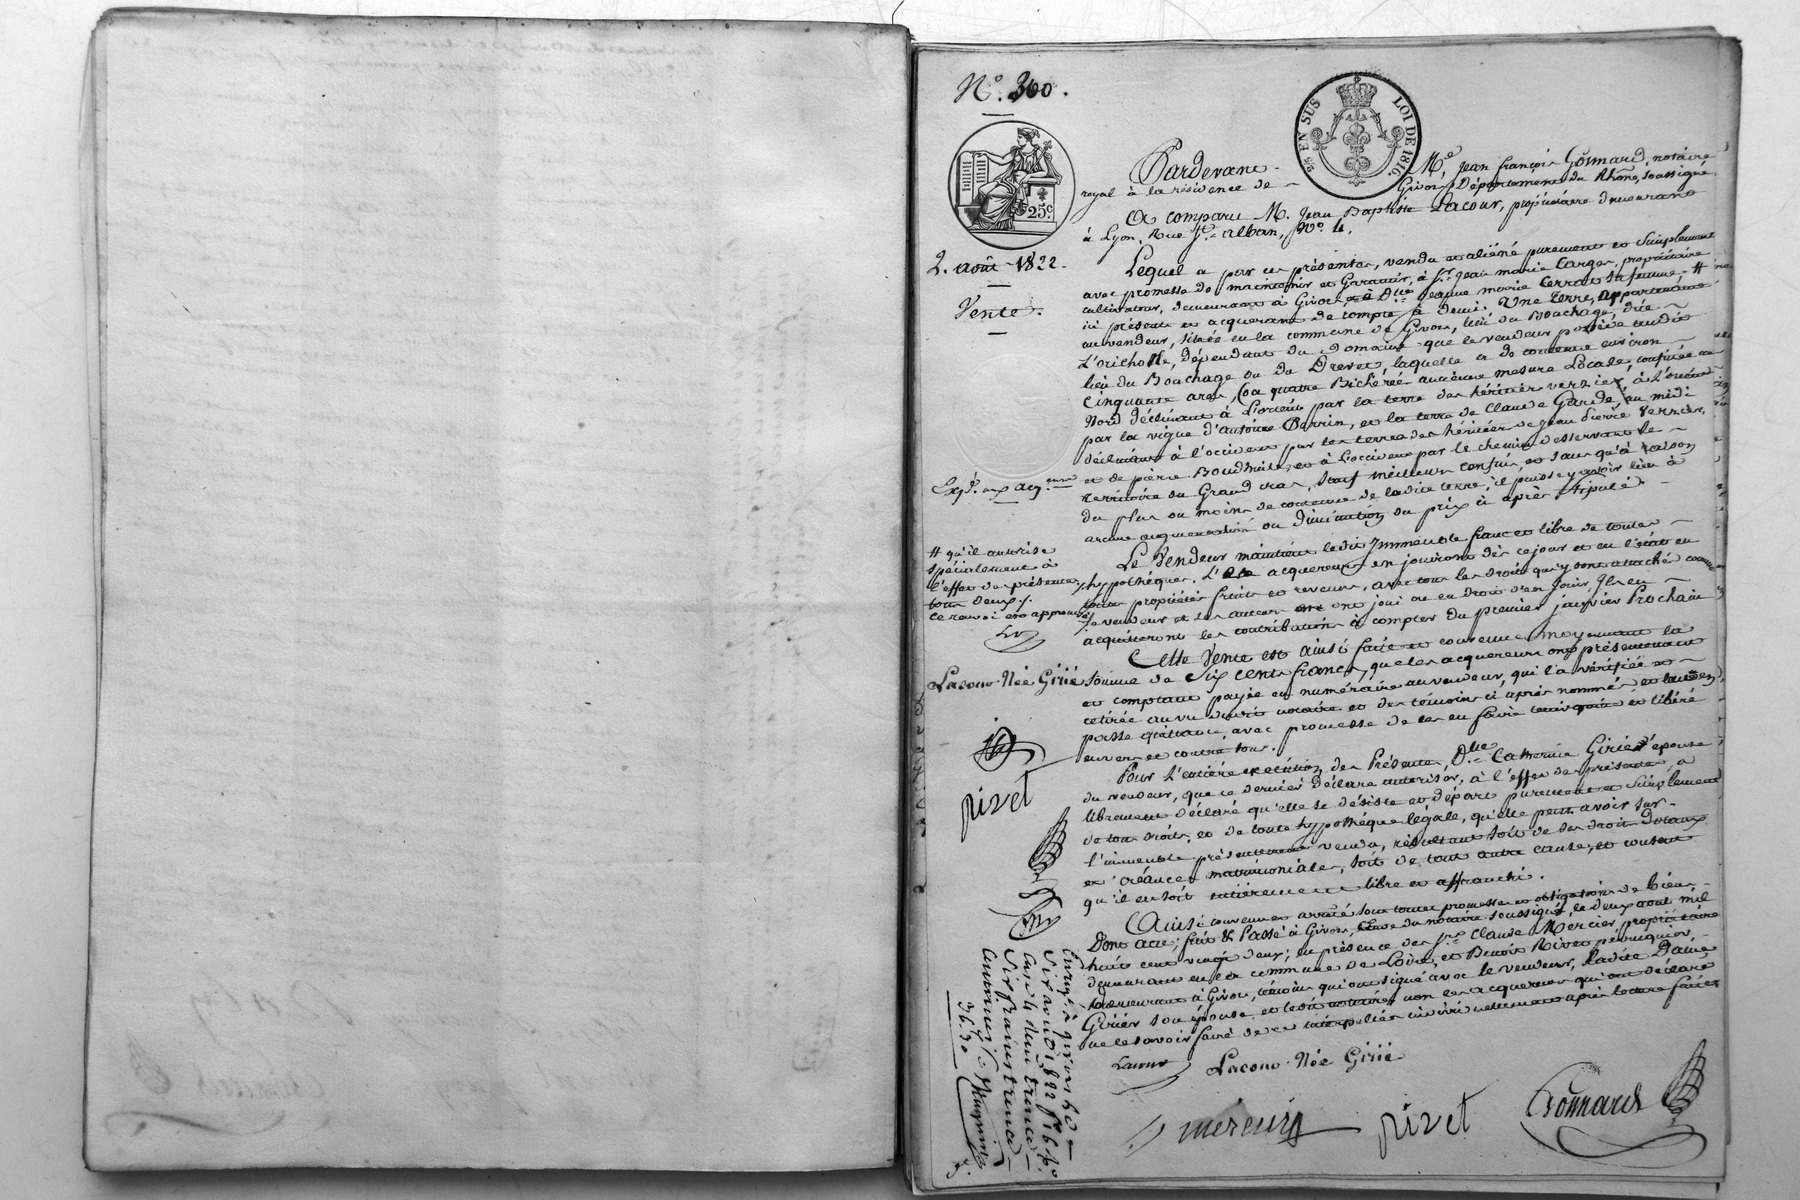 N.° 360.
25 EN SUS LOI DE 1816.
25c.
2. août 1822.
Vente.
Pardevant M.e Jean françois Gonnard, notaire
royal à la résidence de Givors, Département du Rhône, soussigné,
A comparu M. Jean Baptiste Lacour, propriétaire demeurant
à Lyon, Rue St. alban, N.° 4.
Lequel a par ces présentes, vendu et aliéné purement et simplement
avec promesse de maintenir et Garantir, à Sr. Jean marie Targe, propriétaire
cultivateur, demeurant à Givors, et à D.e Jeanne marie Terrat sa femme #
ici présents et acquerant de compte à demi; Une Terre, appartenante
au vendeur, située en la commune de Givors, lieu du Bouchage, dite
dépendante du Domaine que le vendeur possède audit
lieu du Bouchage ou du Drevet, laquelle a de contenue environ
Cinquante ares (ou quatre Bichérées ancienne mesure Locale, confinée au
Nord déclinant à l'orient par la terre des héritiers verzier, à L'orient
par la vigne d'antoine Perrin, et la terre de Claude Garde, au midi
déclinant à l'occident par les terres des héritiers de Jean Pierre Verzier,
et de pierre et à L'occident par le chemin desservant le
territoire du Grand cras, sauf meilleurs confins, et sans qu'à raison
du plus ou moins de contenue de ladite terre, il puisse y avoir lieu à
aucune augmentation ou diminution du prix ci après stipulé.
Exp.é aux acq.
Le Vendeur maintient ledit Immeuble franc et libre de toutes
hypothèques. Les acquereurs en jouiront dès ce jour et en l'état en
toute propriété fruits et revenus, avec tous les droits qui y sont attachés comme
le vendeur et ses auteurs ont joui ou eu droit d'en jouir, Ils en
acquitteront les contributions à compter du premier janvier Prochain
# qu'il autorise
spécialement à
l'effet des présentes,
tous deux ./.
ce renvoi est approuvé
Cette Vente est ainsi faite et convenue moyennant la
somme de Six Cents francs, que les acquereurs ont présentement
et comptant payée en numéraire au vendeur, qui l'a vérifiée et
retirée au vu dudit notaire et des témoins ci après nommés, et leur en
passe quittance, avec promesse de les en faire tenir quitte et libéré
envers et contre tous.
Lacour Née Girié
pivet
Pour l'entière exécution des Présentes, D.lle Catherine Girié, épouse
du vendeur, que ce dernier déclare autoriser, à l'effet des présentes, a
librement déclaré qu'elle se désiste et départ purement et simplement
de tous droits, et de toute hypothèque légale, qu'elle peut avoir sur
l'immeuble présentement vendu, résultant soit de ses droits Dotaux
et créances matrimoniales, soit de tout autre cause, et consent
qu'il en soit entièrement libre et affranchi.
Ainsi convenu et arrêté sous toutes promesses et obligations de biens
Dont acte; fait & Passé à Givors, étude du notaire soussigné, le deux aout mil
huit cent vingt deux; en présence des Srs. Claude Mercier, propriétaire
demeurant en la commune de Loire, et Benoit Rivet perruquier,
demeurant à Givors, témoins qui ont signé avec le vendeur, ladite Dame
Girié son épouse, et ledit notaire, non les acquereurs qui ont déclaré
ne le savoir faire de ce interpellés individuellement après lecture faite
Lacour
Lacour Née Girié
mercier
pivet
Gonnard
Enregé à Givors le
Six aout 1822
Case 4 deux
Six francs trente
Centimes
36.30